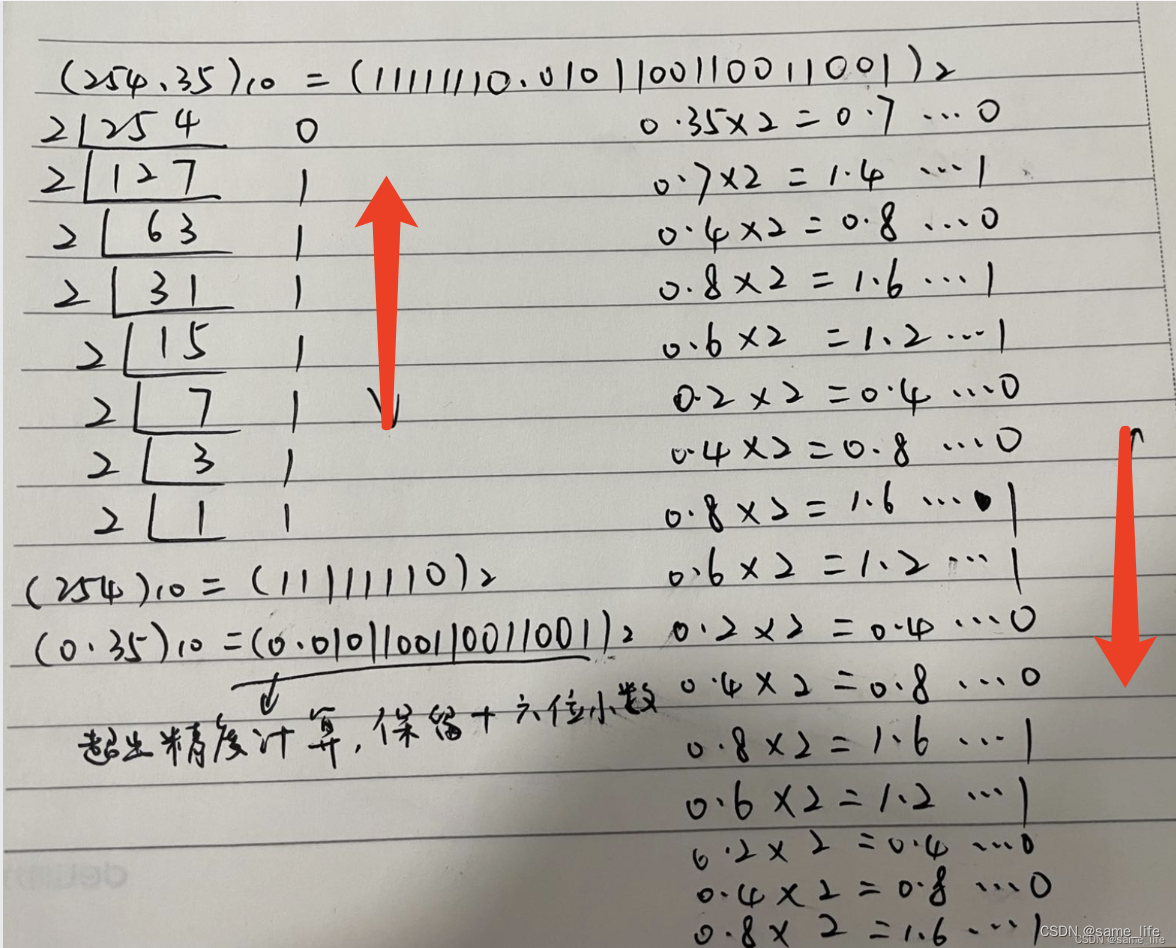 (254.35)₁₀ = (11111110.0101100110011001)₂
2 254 0
2 127 1
2 63 1
2 31 1
2 15 1
2 7 1
2 3 1
2 1 1
(254)₁₀ = (11111110)₂
(0.35)₁₀ = (0.0101100110011001)₂
超出精度计算,保留十六位小数
0.35×2 = 0.7 …0
0.7×2 = 1.4 …1
0.4×2 = 0.8 …0
0.8×2 = 1.6 …1
0.6×2 = 1.2 …1
0.2×2 = 0.4 …0
0.4×2 = 0.8 …0
0.8×2 = 1.6 …1
0.6×2 = 1.2 …1
0.2×2 = 0.4 …0
0.4×2 = 0.8 …0
0.8×2 = 1.6 …1
0.6×2 = 1.2 …1
0.2×2 = 0.4 …0
0.4×2 = 0.8 …0
0.8×2 = 1.6 …1
CSDN @same_life
CSDN @same_life